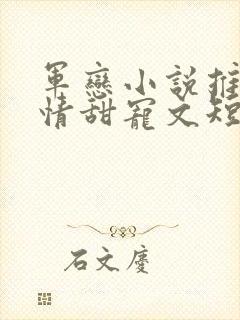 軍戀小說推
情甜寵文短
石文慶